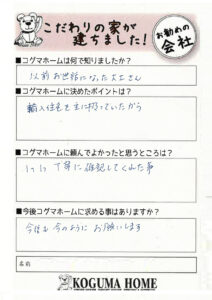 こだわりの家が
建ちました!
お勧めの
会社
■コグマホームは何で知りましたか?
以前お世話になった大工さん
■コグマホームに決めたポイントは?
輸入住宅を主に扱っていたから
■コグマホームに頼んでよかったと思うところは?
1つ1つ丁寧に確認してくれた事
■今後コグマホームに求める事はありますか?
今後も今のようにお願いします
名前
KOGUMA HOME